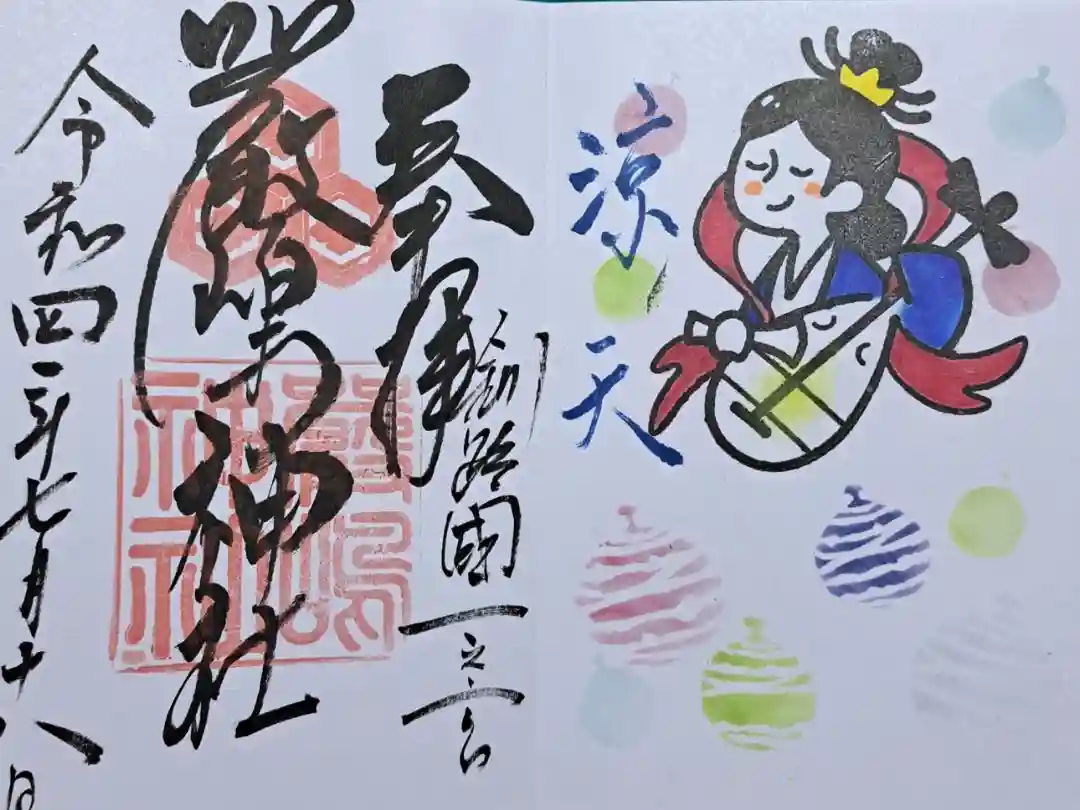 涼天
奉拝
釧路國一之宮
嚴嶋神社
嚴嶋
神社
令和四年七月十八日